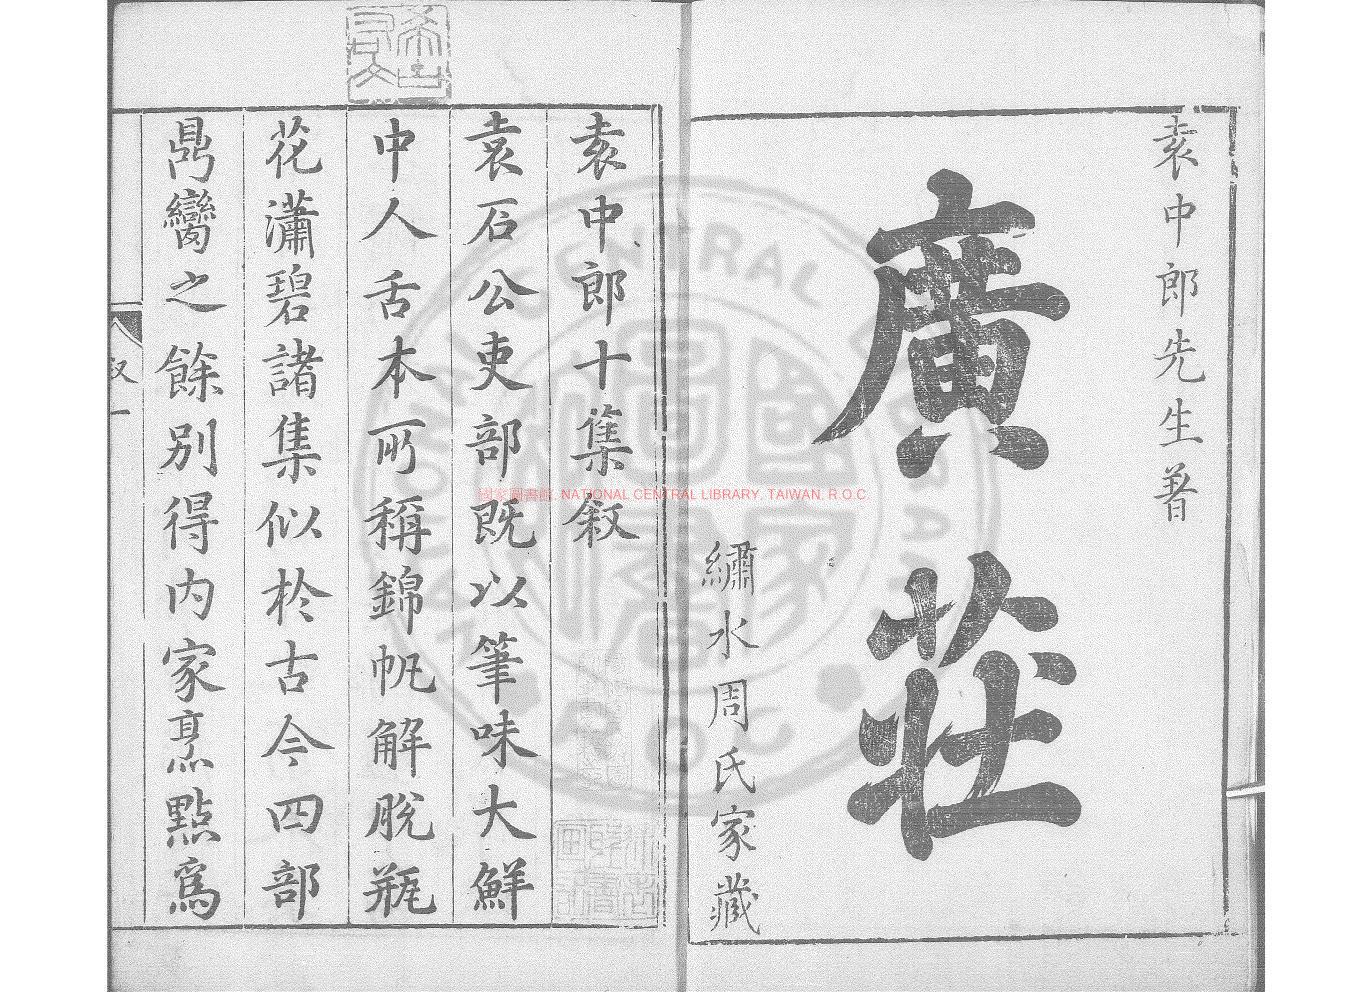 袁中郎先生著
廣莊
繡水周氏家藏
袁中郎十集叙
袁石公吏部既以筆味大鮮
中人舌本所稱錦帆解脫瓶
花瀟碧諸集似於古今四部
鼎臠之餘別得内家烹點為
叙一
國家圖書館, NATIONAL CENTRAL LIBRARY, TAIWAN, R.O.C.